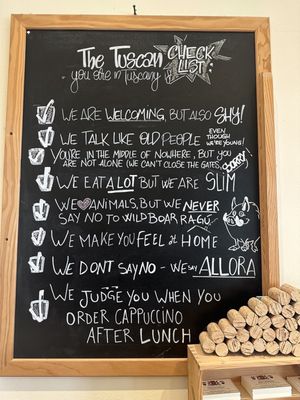 The Tuscan CHECK
LIST!
you are in Tuscany if
WE ARE WELCOMING, BUT ALSO SHY!
WE TALK LIKE OLD PEOPLE EVEN THOUGH WE'RE YOUNG!
YOU'RE IN THE MIDDLE OF NOWHERE, BUT YOU
ARE NOT ALONE (WE CAN'T CLOSE THE GATES, SORRY)
WE EAT A LOT BUT WE ARE SLIM
WE ANIMALS, BUT WE NEVER
SAY NO TO WILD BOAR RAGÚ
WE MAKE YOU FEEL at HOME
WE DON'T SAY NO - WE say ALLORA
WE JUDGE YOU WHEN YOU
ORDER CAPPUCCINO
AFTER LUNCH